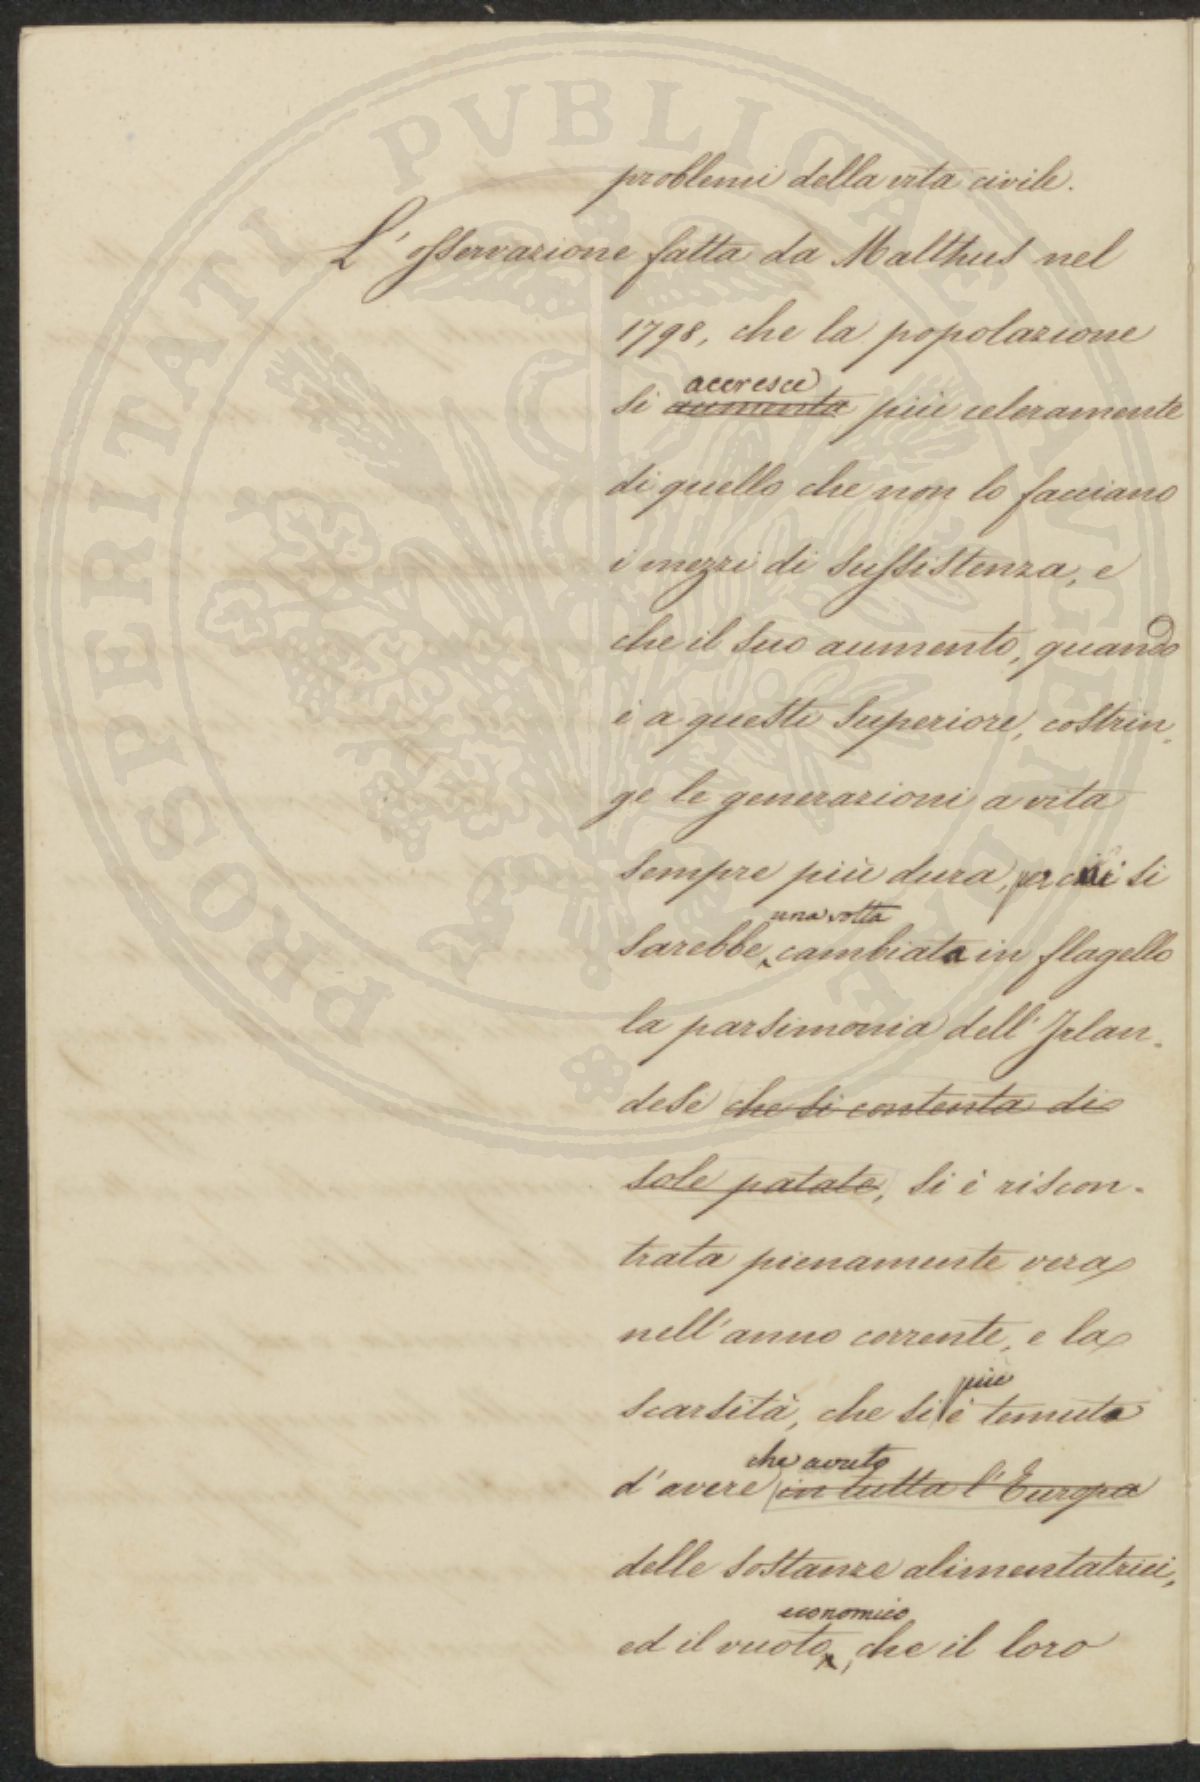 problemi della vita civile.
L'osservazione fatta da Malthus nel
1798, che la popolazione
accresce
si aumenta più celeramente
di quello che non lo facciano
i mezzi di sussistenza, e
che il suo aumento, quando
è a questi superiore, costrin„
ge le generazioni a vita
sempre più dura, per cui si
una volta
sarebbe cambiata in flagello
la parsimonia dell'Irlan„
dese che si contenta di
sole patate, si è riscon-
trata pienamente vera
nell'anno corrente, e la
più
scarsità, che si è temuta
che avuto
d'avere in tutta l'Europa
delle sostanze alimentatrici,
economico
ed il vuoto, che il loro
PROSPERITATI PVBLICAE AVGENDAE